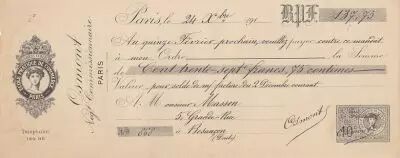 Osmont
Négt Commissionnaire
PARIS
Téléphone
Paris, le 24 Xbre 191
B.P.F. 137,75
Au quinze Février prochain, veuillez payer contre ce mandat
à mon Ordre la Somme
de Cent trente-sept francs 75 centimes
Valeur pour solde de ma facture du 2 Décembre courant
A Monsieur Masson
5, Grande-Rue
à Besançon
(Doubs)
Osmont